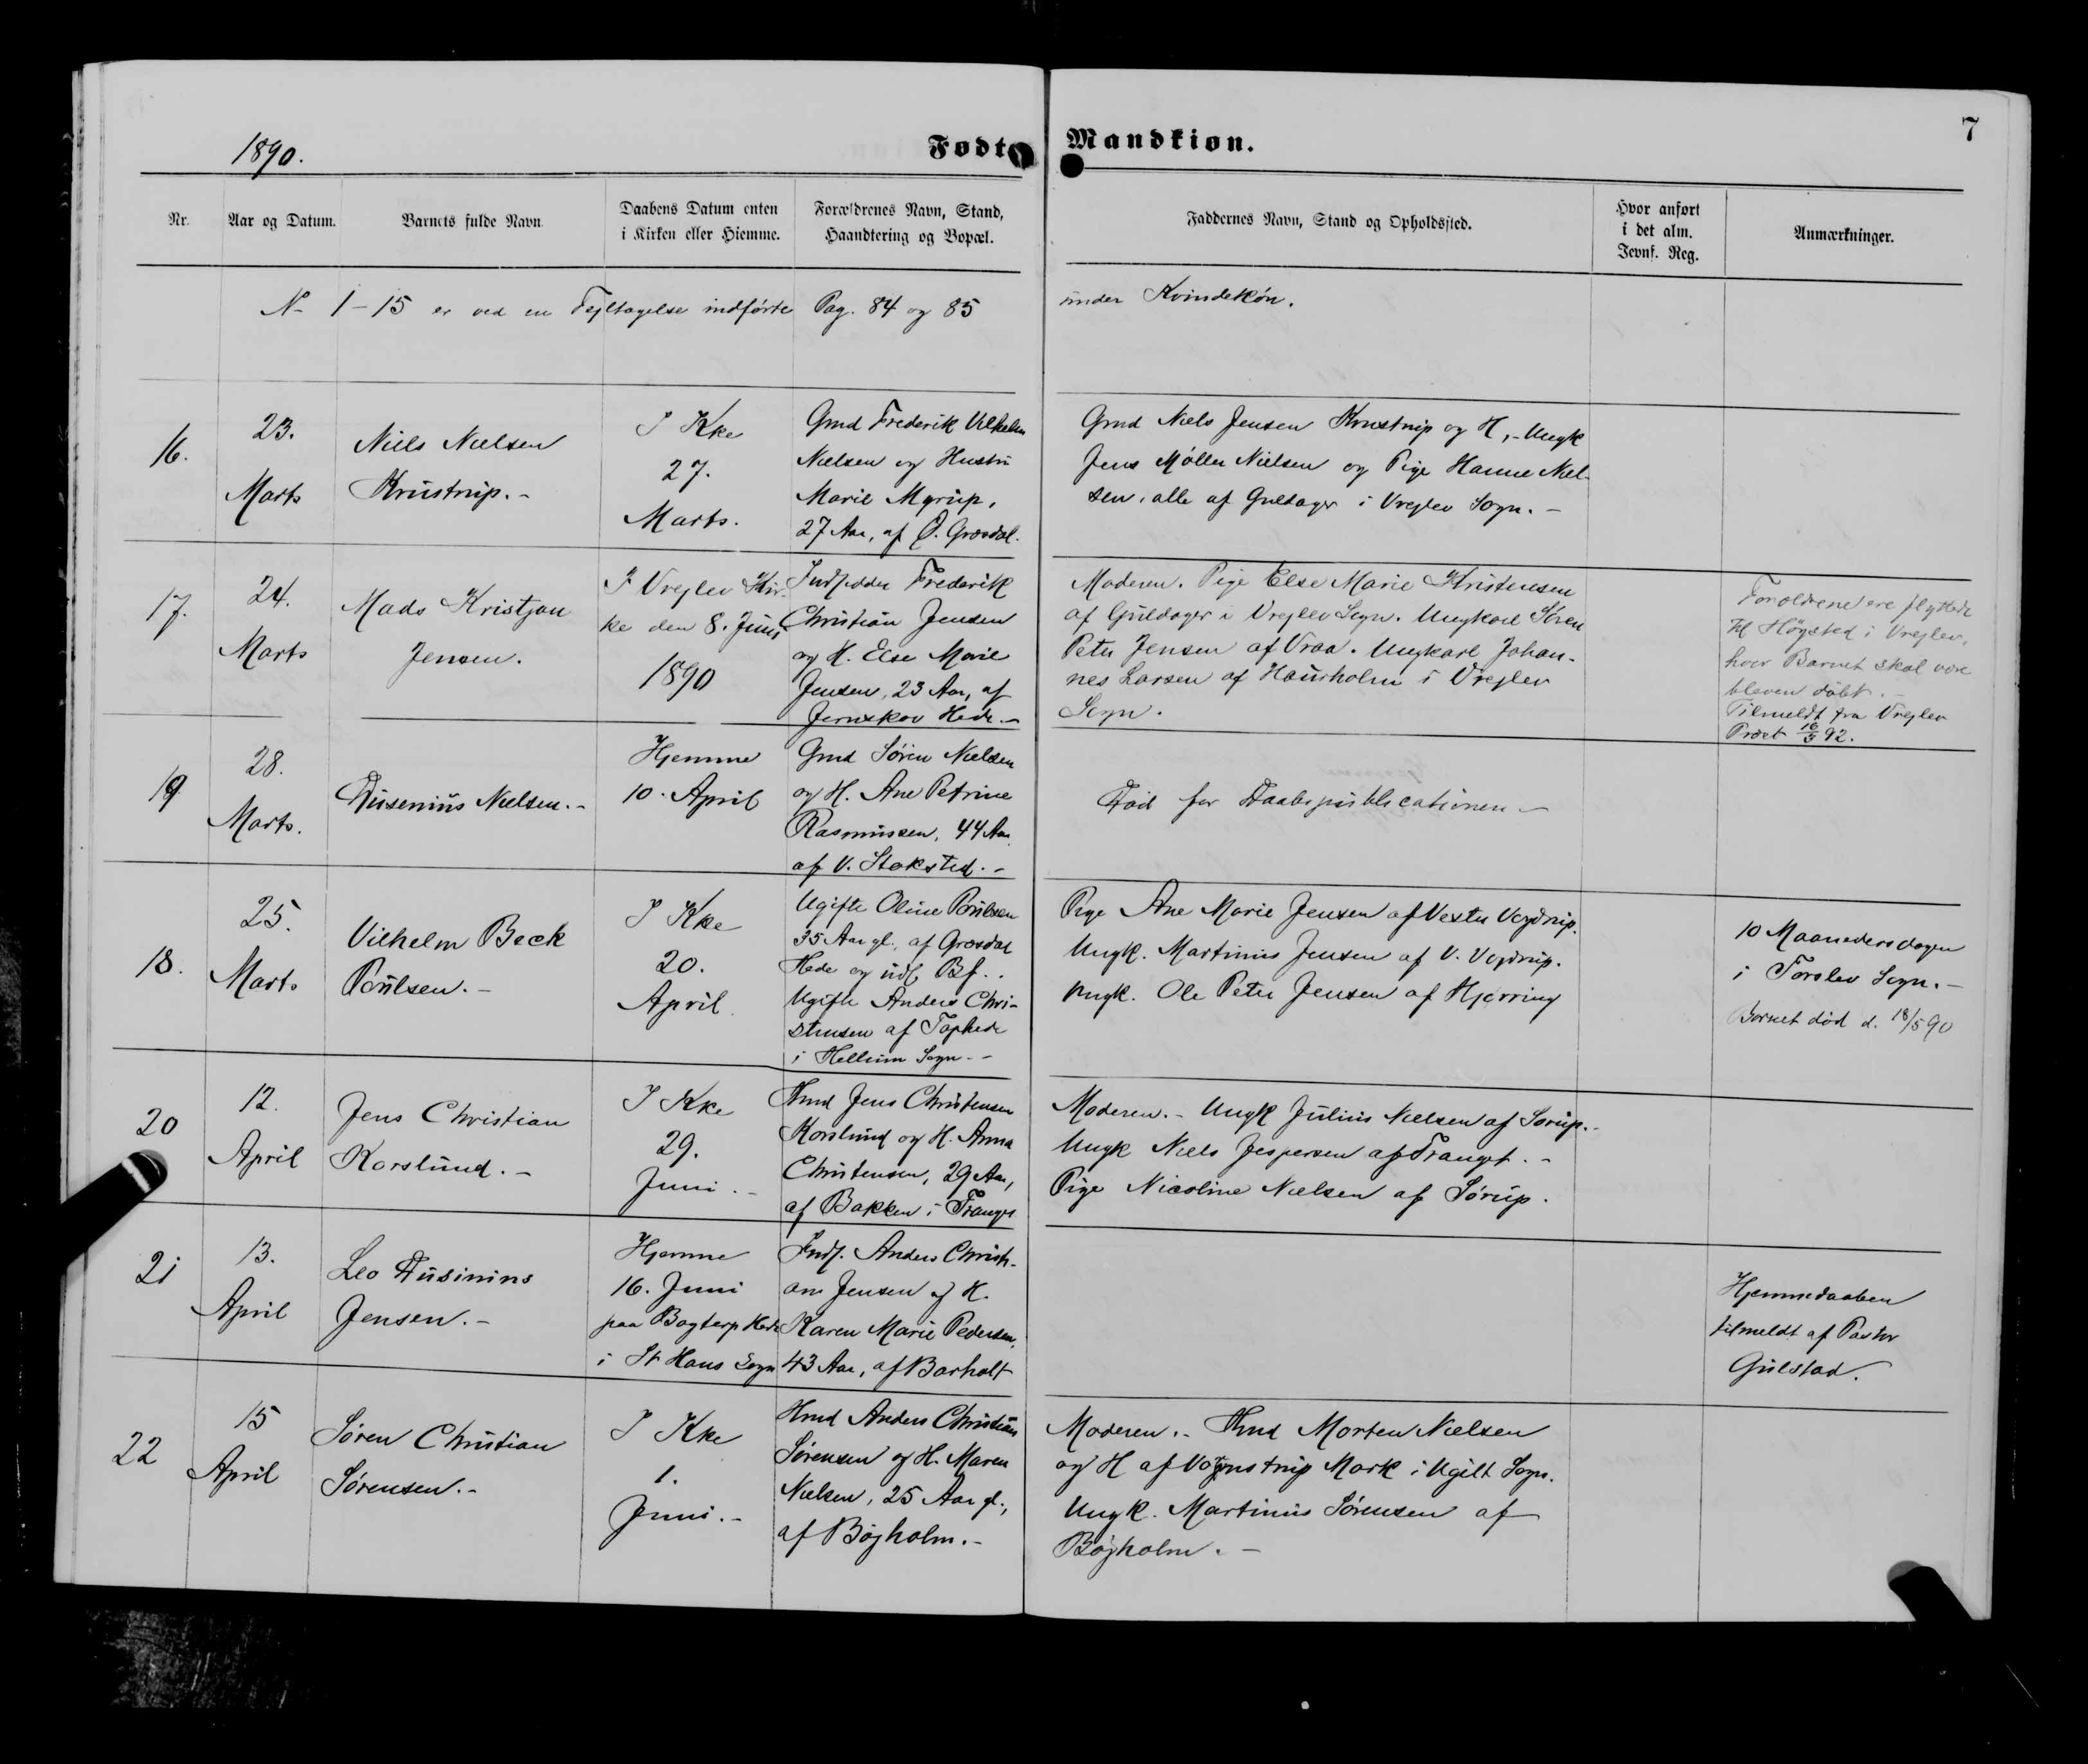 1890.
Født Mandkiøn.
7
Nr.
Aar og Datum.
Barnets fulde Navn
Daabens Datum enten
i Kirken eller Hiemme.
Forældrenes Navn, Stand,
Haandtering og Bopæl.
Faddernes Navn, Stand og Opholdssted.
Hvor anført
i det alm.
Jevnf. Reg.
Anmærkninger.
N- 1-15 er ved en Fejltagelse indførte Pag. 84 og 85 under Kvindekøn.
16.
23.
Marts
Niels Nielsen
Krustrup.-
I Kke
27.
Marts.
Gmd Frederik Vilhelm
Nielsen og Hustru
Marie Myrup,
27 Aar, af Ø. Grøsdal.
Gmd Niels Jensen Krustrup og H,- Ungk
Jens Møller Nielsen og Pige Hanne Niel-
sen, alle af Guldager i Vrejlev Sogn.-
17.
24.
Marts
Mads Kristjan
Jensen.
I Vrejlev Kir-
ke den 8. Juni
1890
Indsidder Frederik
Christian Jensen
og H. Else Marie
Jensen, 23 Aar, af
Jernskov Hede.-
Moderen. Pige Else Marie Kristensen
af Guldager i Vrejlev Sogn. Ungkarl Søren
Peter Jensen af Vraa. Ungkarl Johan-
nes Larsen af Hausholm i Vrejlev
Sogn.
Forældrene ere flyttede
til Høgsted i Vrejlev,
hvor Barnet skal være
bleven døbt.-
Tilmeldt fra Vrejlev
Præst 16/3 92.
19
28.
Marts.
Dusenius Nielsen.-
Hjemme
10. April
Gmd Søren Nielsen
og H. Ane Petrine
Rasmussen, 44 Aar
af V. Stoksted.-
Død før Daabspublicationen-
18.
25.
Marts
Vilhelm Beck
Poulsen.-
I Kke
20.
April
Ugifte Oline Poulsen
35 Aar gl., af Grøsdal
Hede og udl. Bf..
Ugifte Anders Chri-
stensen af Tophede
i Hellum Sogn.-
Pige Ane Marie Jensen af Vester Vejdrup.
Ungk. Martinus Jensen af V. Vejdrup.
Ungk. Ole Peter Jensen af Hjørring
10 Maanedersdagen
i Torslev Sogn.-
Barnet død d. 18/5 90
20
12.
April
Jens Christian
Korslund.-
I Kke
29.
Juni.-
Hmd Jens Christensen
Korslund og H. Anna
Christensen, 29 Aar,
af Bakken i Tranget
Moderen.- Ungk Julius Nielsen af Sørup.-
Ungk Niels Jespersen af Tranget.-
Pige Nicoline Nielsen af Sørup.
21
13.
April
Leo Dusinius
Jensen.-
Hjemme
16. Juni
paa Bagterp Hede
i St Hans Sogn
Inds. Anders Christi-
an Jensen og H.
Karen Marie Pedersen,
43 Aar, af Barholt
Hjemmedaaben
tilmeldt af Pastor
Gulstad.
22
15
April
Søren Christian
Sørensen.-
I Kke
1.
Juni.-
Hmd Anders Christian
Sørensen og H. Maren
Nielsen, 25 Aar gl.,
af Bøjholm.-
Moderen.- Hmd Morten Nielsen
og H af Vognstrup Mark i Ugilt Sogn.
Ungk. Martinus Sørensen af
Bøjholm.-